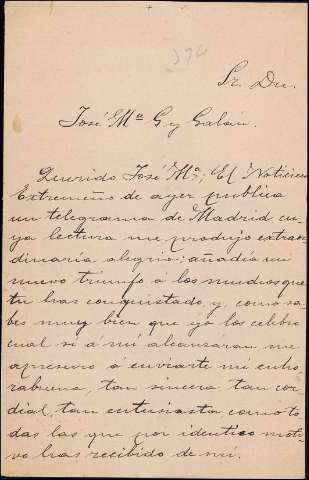 374
Sr. Dn.
José Mª G y Galán.
Querido José Mª; El Noticiero
Extremeño de ayer publica
un telegrama de Madrid cu-
ya lectura me produjo extraor-
dinaria alegria: añadia un
nuevo triunfo á los muchos que
tu has conquistado, y, como sa-
bes muy bien que yo los celebro
cual si á mi alcanzaran, me
apresuro á enviarte mi enho-
rabuena, tan sincera, tan cor-
dial, tan entusiasta como to-
das las que por identico moti-
vo has recibido de mi.